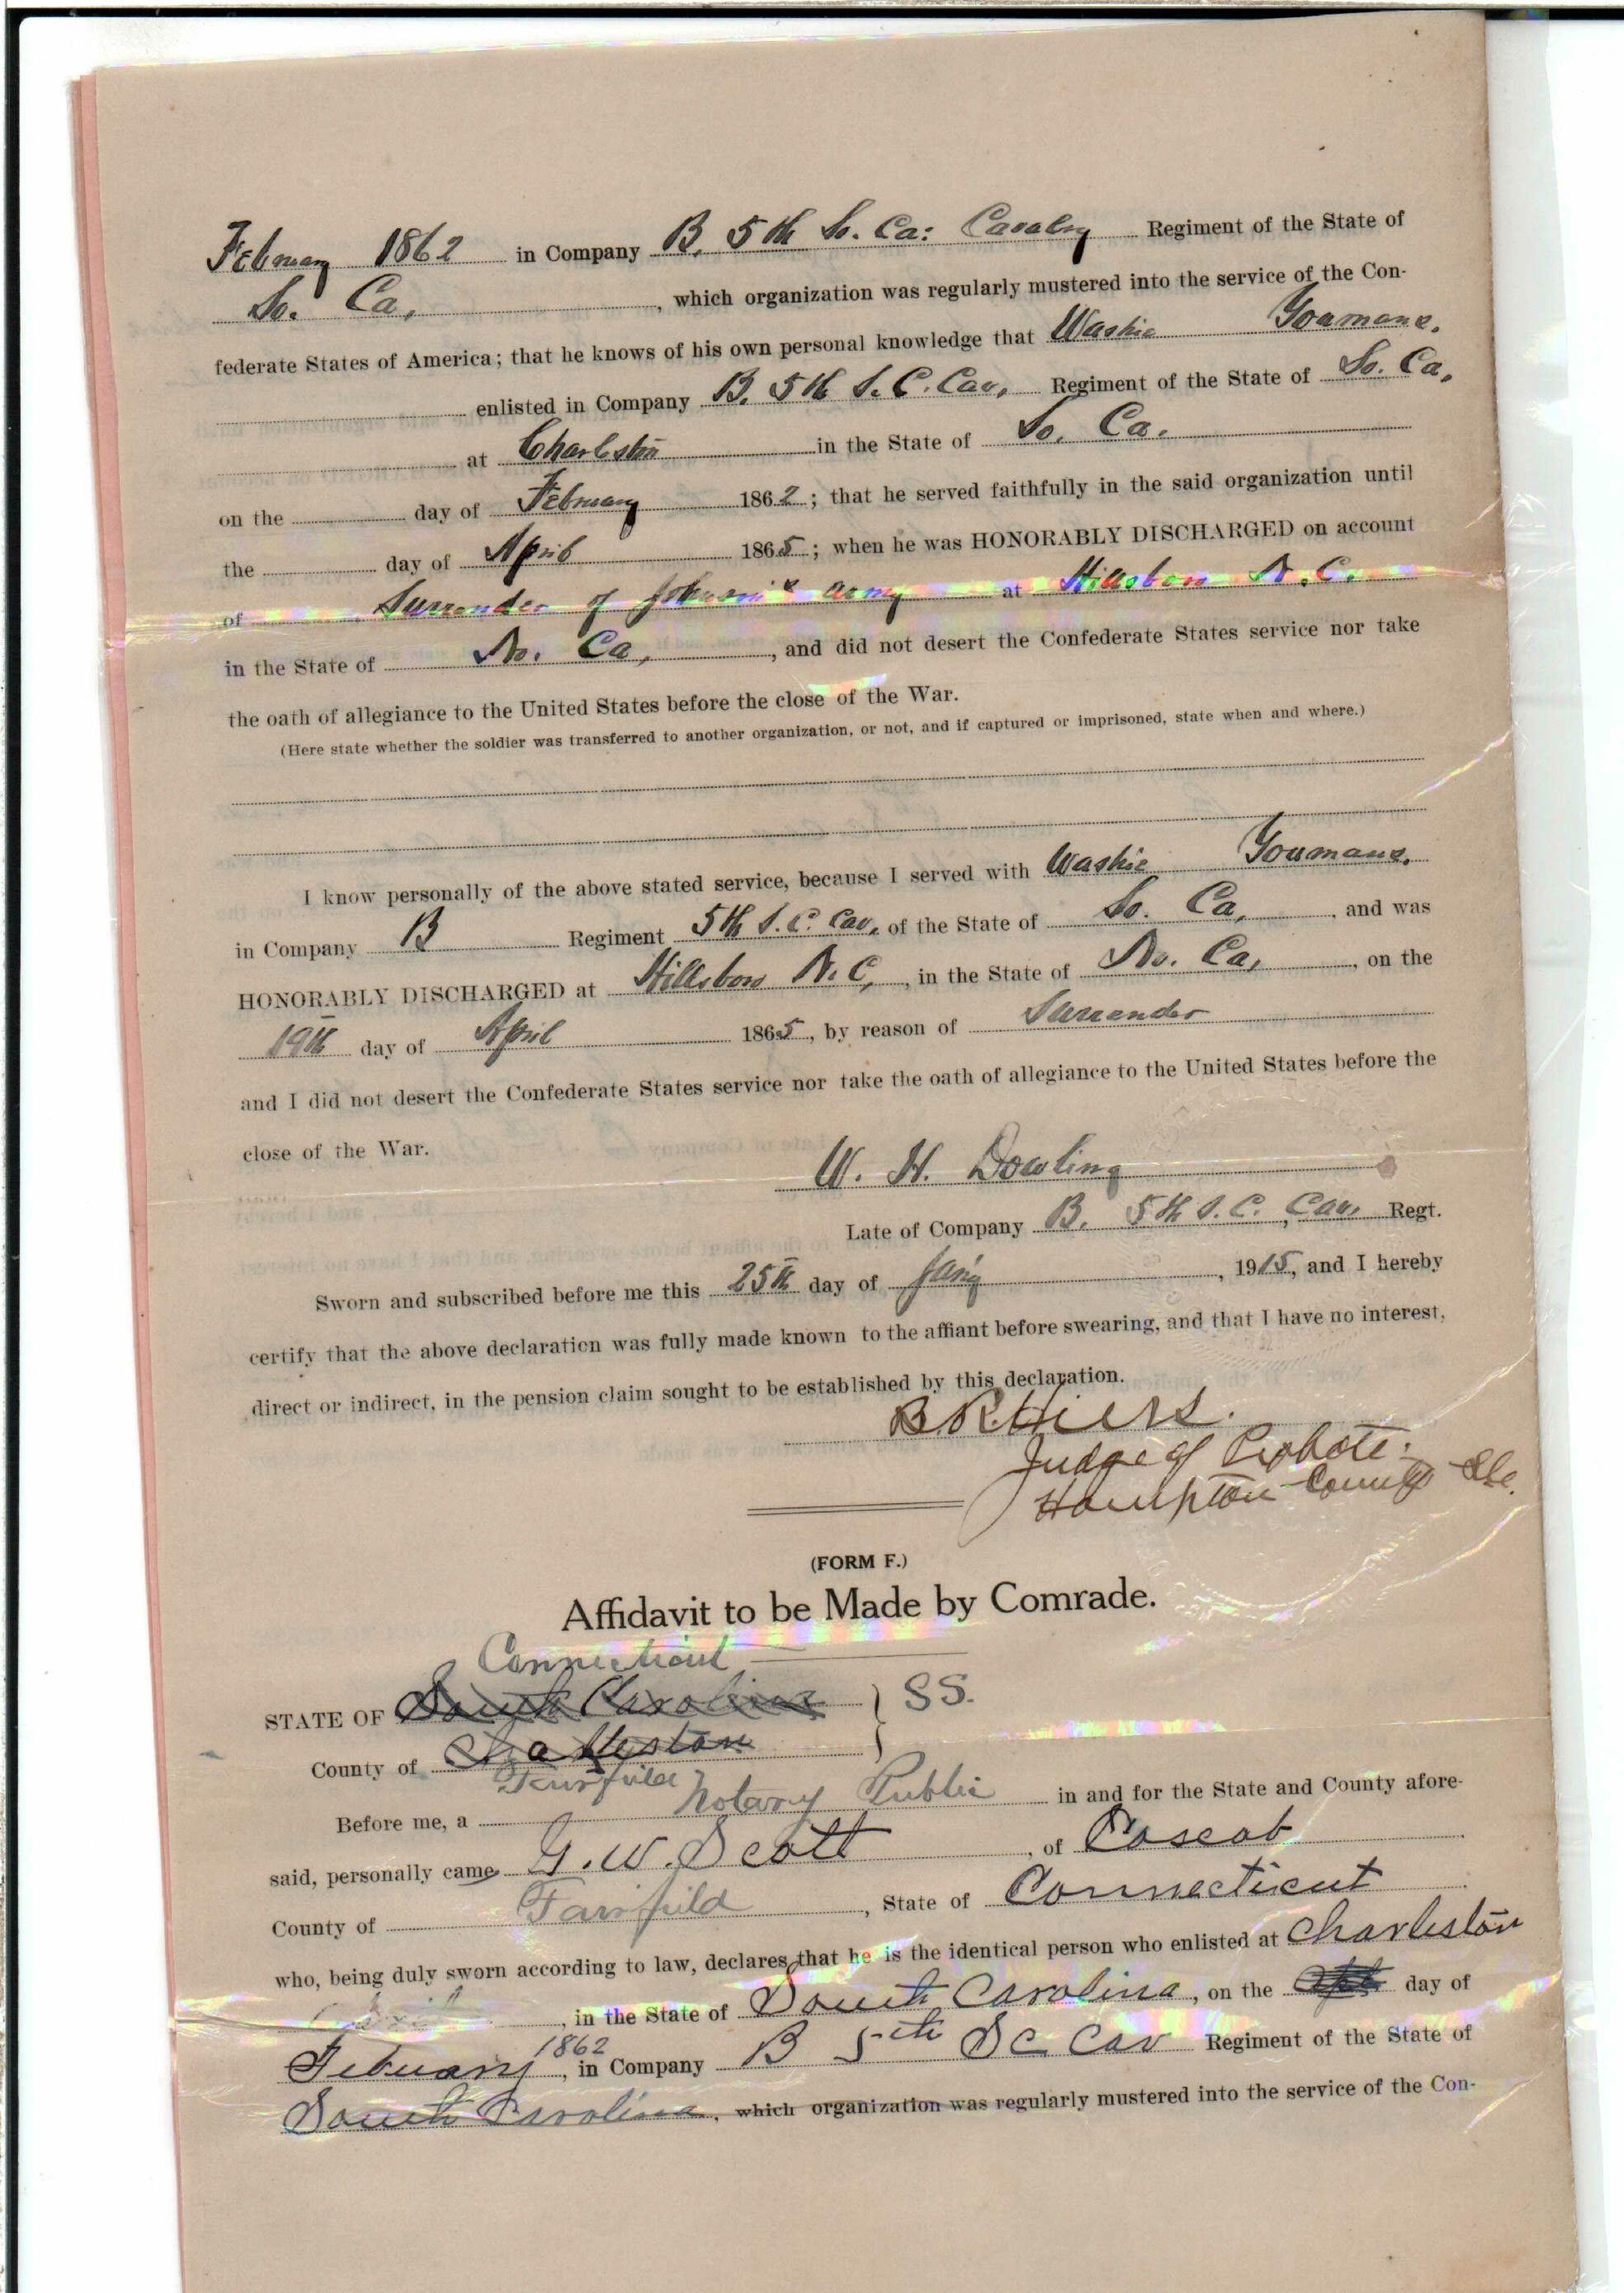 February 1862 in Company B. 5th So. Ca: Cavalry Regiment of the State of
So. Ca, , which organization was regularly mustered into the service of the Con-
federate States of America; that he knows of his own personal knowledge that Washie Youmans.
enlisted in Company B. 5th S. C. Cav, Regiment of the State of So. Ca,
at Charleston in the State of So. Ca.
on the day of February 1862; that he served faithfully in the said organization until
the day of April 1865; when he was HONORABLY DISCHARGED on account
of Surrender of Johnson's army at Hillsboro N. C.
in the State of No. Ca, , and did not desert the Confederate States service nor take
the oath of allegiance to the United States before the close of the War.
(Here state whether the soldier was transferred to another organization, or not, and if captured or imprisoned, state when and where.)
I know personally of the above stated service, because I served with Washie Youmans.
in Company B Regiment 5th S. C. Cav, of the State of So. Ca, , and was
HONORABLY DISCHARGED at Hillsboro N. C, , in the State of No. Ca, , on the
19th day of April 1865, by reason of Surrender
and I did not desert the Confederate States service nor take the oath of allegiance to the United States before the
close of the War.
W. H. Dowling
Late of Company B. 5th S. C. Cav, Regt.
Sworn and subscribed before me this 25th day of Jany , 1915, and I hereby
certify that the above declaration was fully made known to the affiant before swearing, and that I have no interest,
direct or indirect, in the pension claim sought to be established by this declaration.
B R Hiers.
Judge of Probate.
Hampton County S.C.
(FORM F.)
Affidavit to be Made by Comrade.
Connecticut
STATE OF South Carolina } SS.
County of Charleston
Fairfield
Before me, a Notary Public in and for the State and County afore-
said, personally came G. W. Scott , of Coscob
County of Fairfield , State of Connecticut
who, being duly sworn according to law, declares that he is the identical person who enlisted at Charleston
, in the State of South Carolina , on the day of
Febuary 1862 , in Company B 5th SC Cav Regiment of the State of
South Carolina , which organization was regularly mustered into the service of the Con-